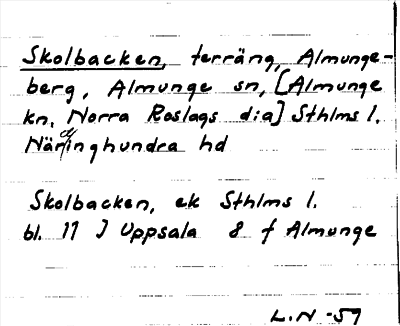 Skolbacken, terräng, Almunge-
berg, Almunge sn, [Almunge
kn, Norra Roslags d:a] Sthlms l.
Närdinghundra hd
Skolbacken, ek Sthlms l.
bl. 11 J Uppsala 8 f Almunge
L.N -59